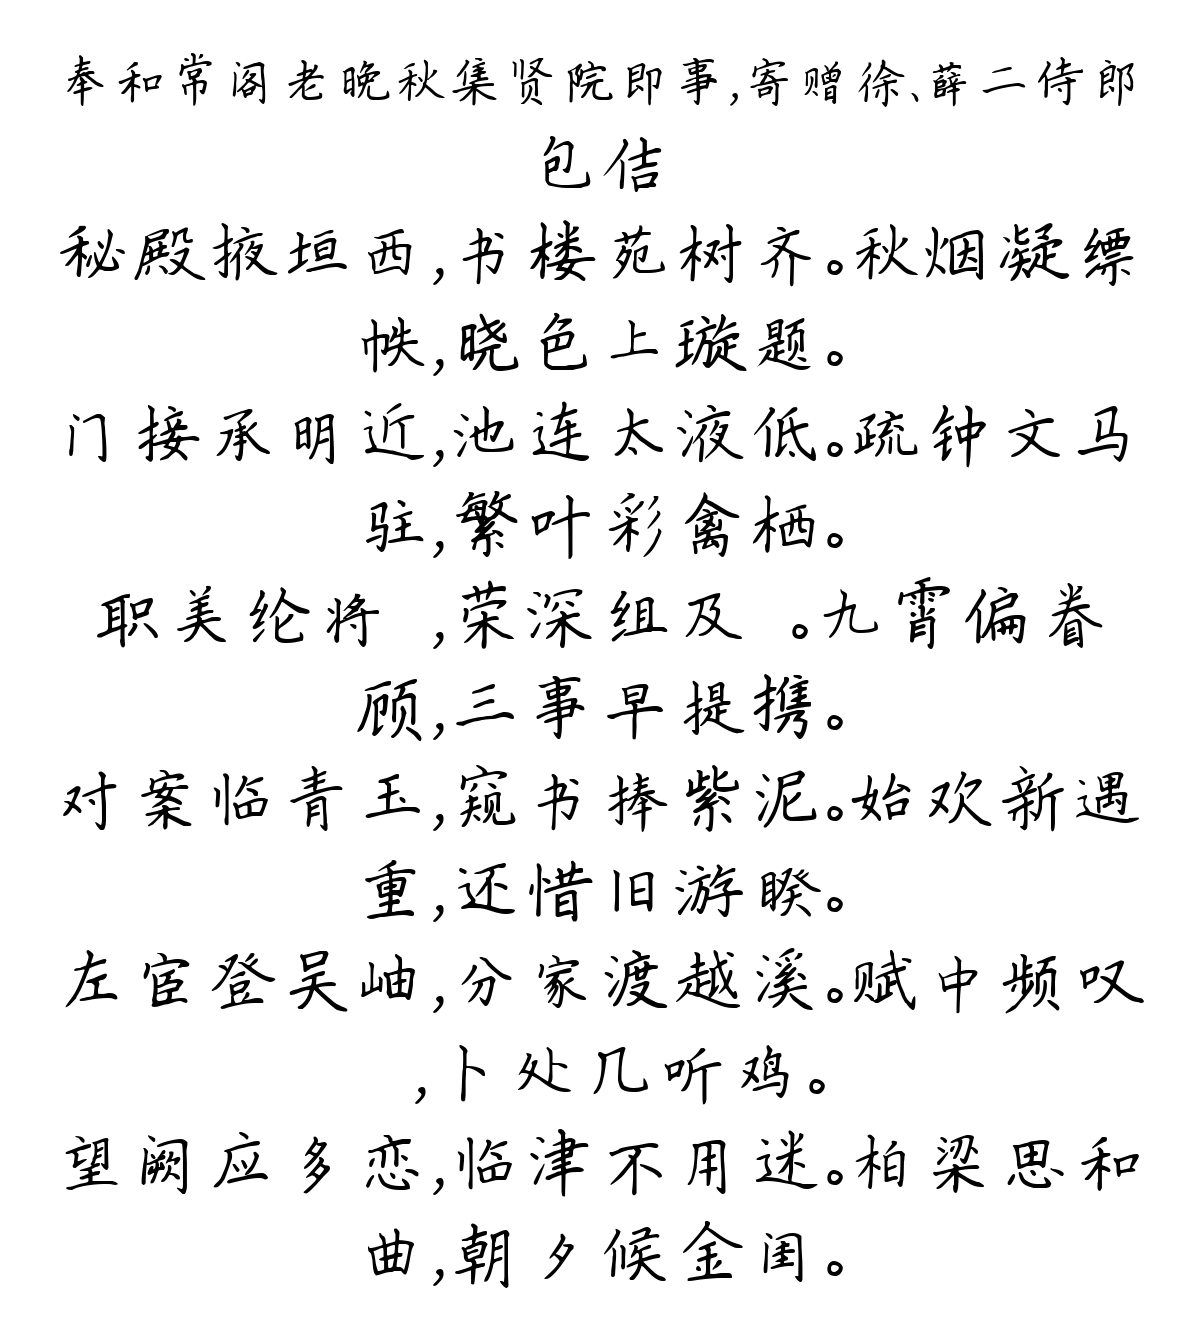 奉和常阁老晚秋集贤院即事,寄赠徐、薛二侍郎
包佶
秘殿掖垣西,书楼苑树齐。秋烟凝缥
帙,晓色上璇题。
门接承明近,池连太液低。疏钟文马
驻,繁叶彩禽栖。
职美纶将 ,荣深组及 。九霄偏眷
顾,三事早提携。
对案临青玉,窥书捧紫泥。始欢新遇
重,还惜旧游睽。
左宦登吴岫,分家渡越溪。赋中频叹
,卜处几听鸡。
望阙应多恋,临津不用迷。柏梁思和
曲,朝夕候金闺。